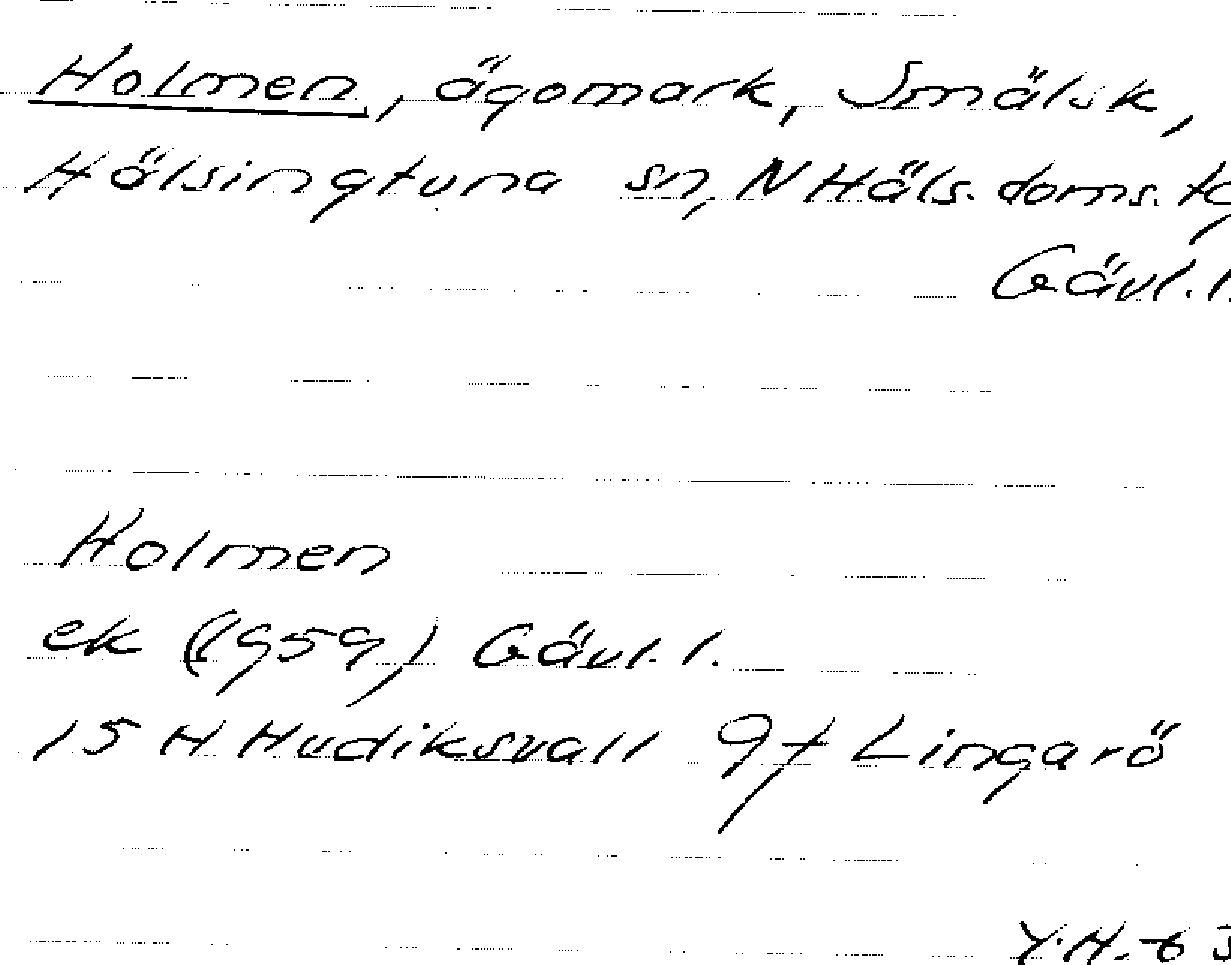 Holmen, ägomark, Smälsk,
Hälsingtuna sn, N Häls. doms. tg
Gävl. l.
Holmen
ek (1959) Gävl. l.
15 H Hudiksvall 9f Lingarö
Y.H.-6